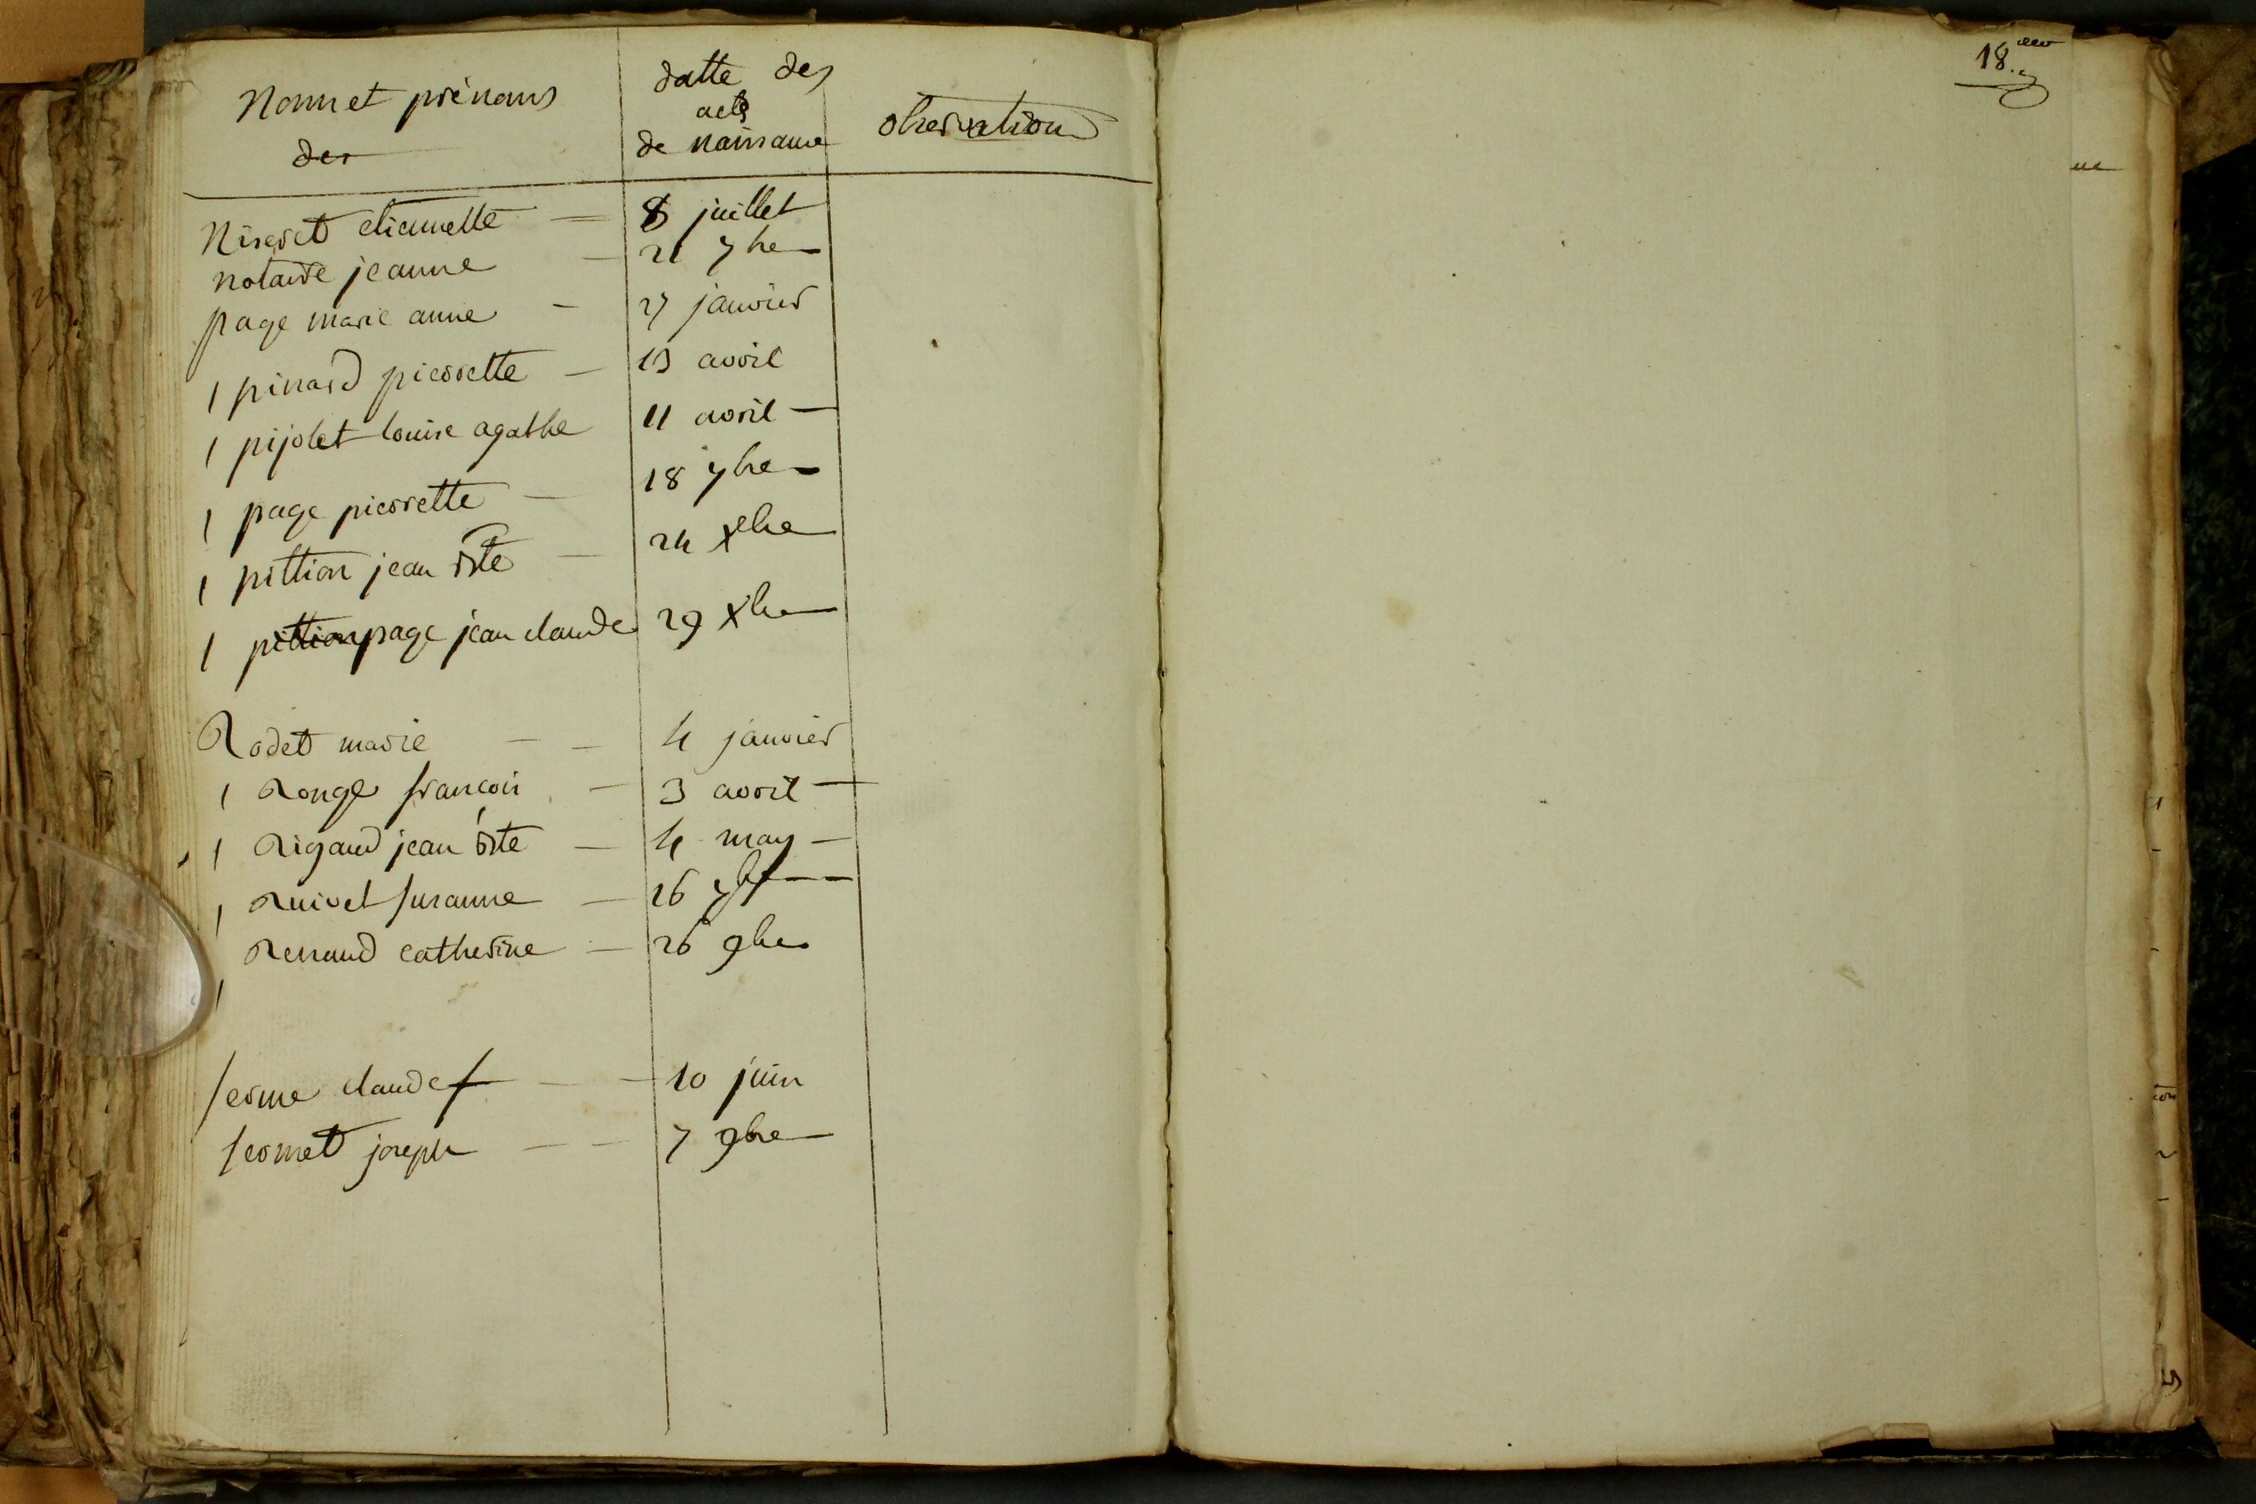 Nom et prénoms
des
datte des
acts
de naissance
observations
Niseret etiennette — 8 juillet
notaire jeanne — 21 7bre
page marie anne — 27 janvier
1 pinard pierrette — 13 avril
1 pijolet louise agathe 11 avril —
1 page pierrette — 18 7bre
1 pittion jean bte — 24 xbre
1 pittion page jean claude 29 xbre
Rodet marie — — 4 janvier
1 Ronge francois — 3 avril —
1 Rigaud jean bte — 4 may —
1 Ruivet susanne — 26 7bre
1 Renaud catherine — 26 9bre
serme claude — — 10 juin
sermet joseph — — 7 9bre
18.